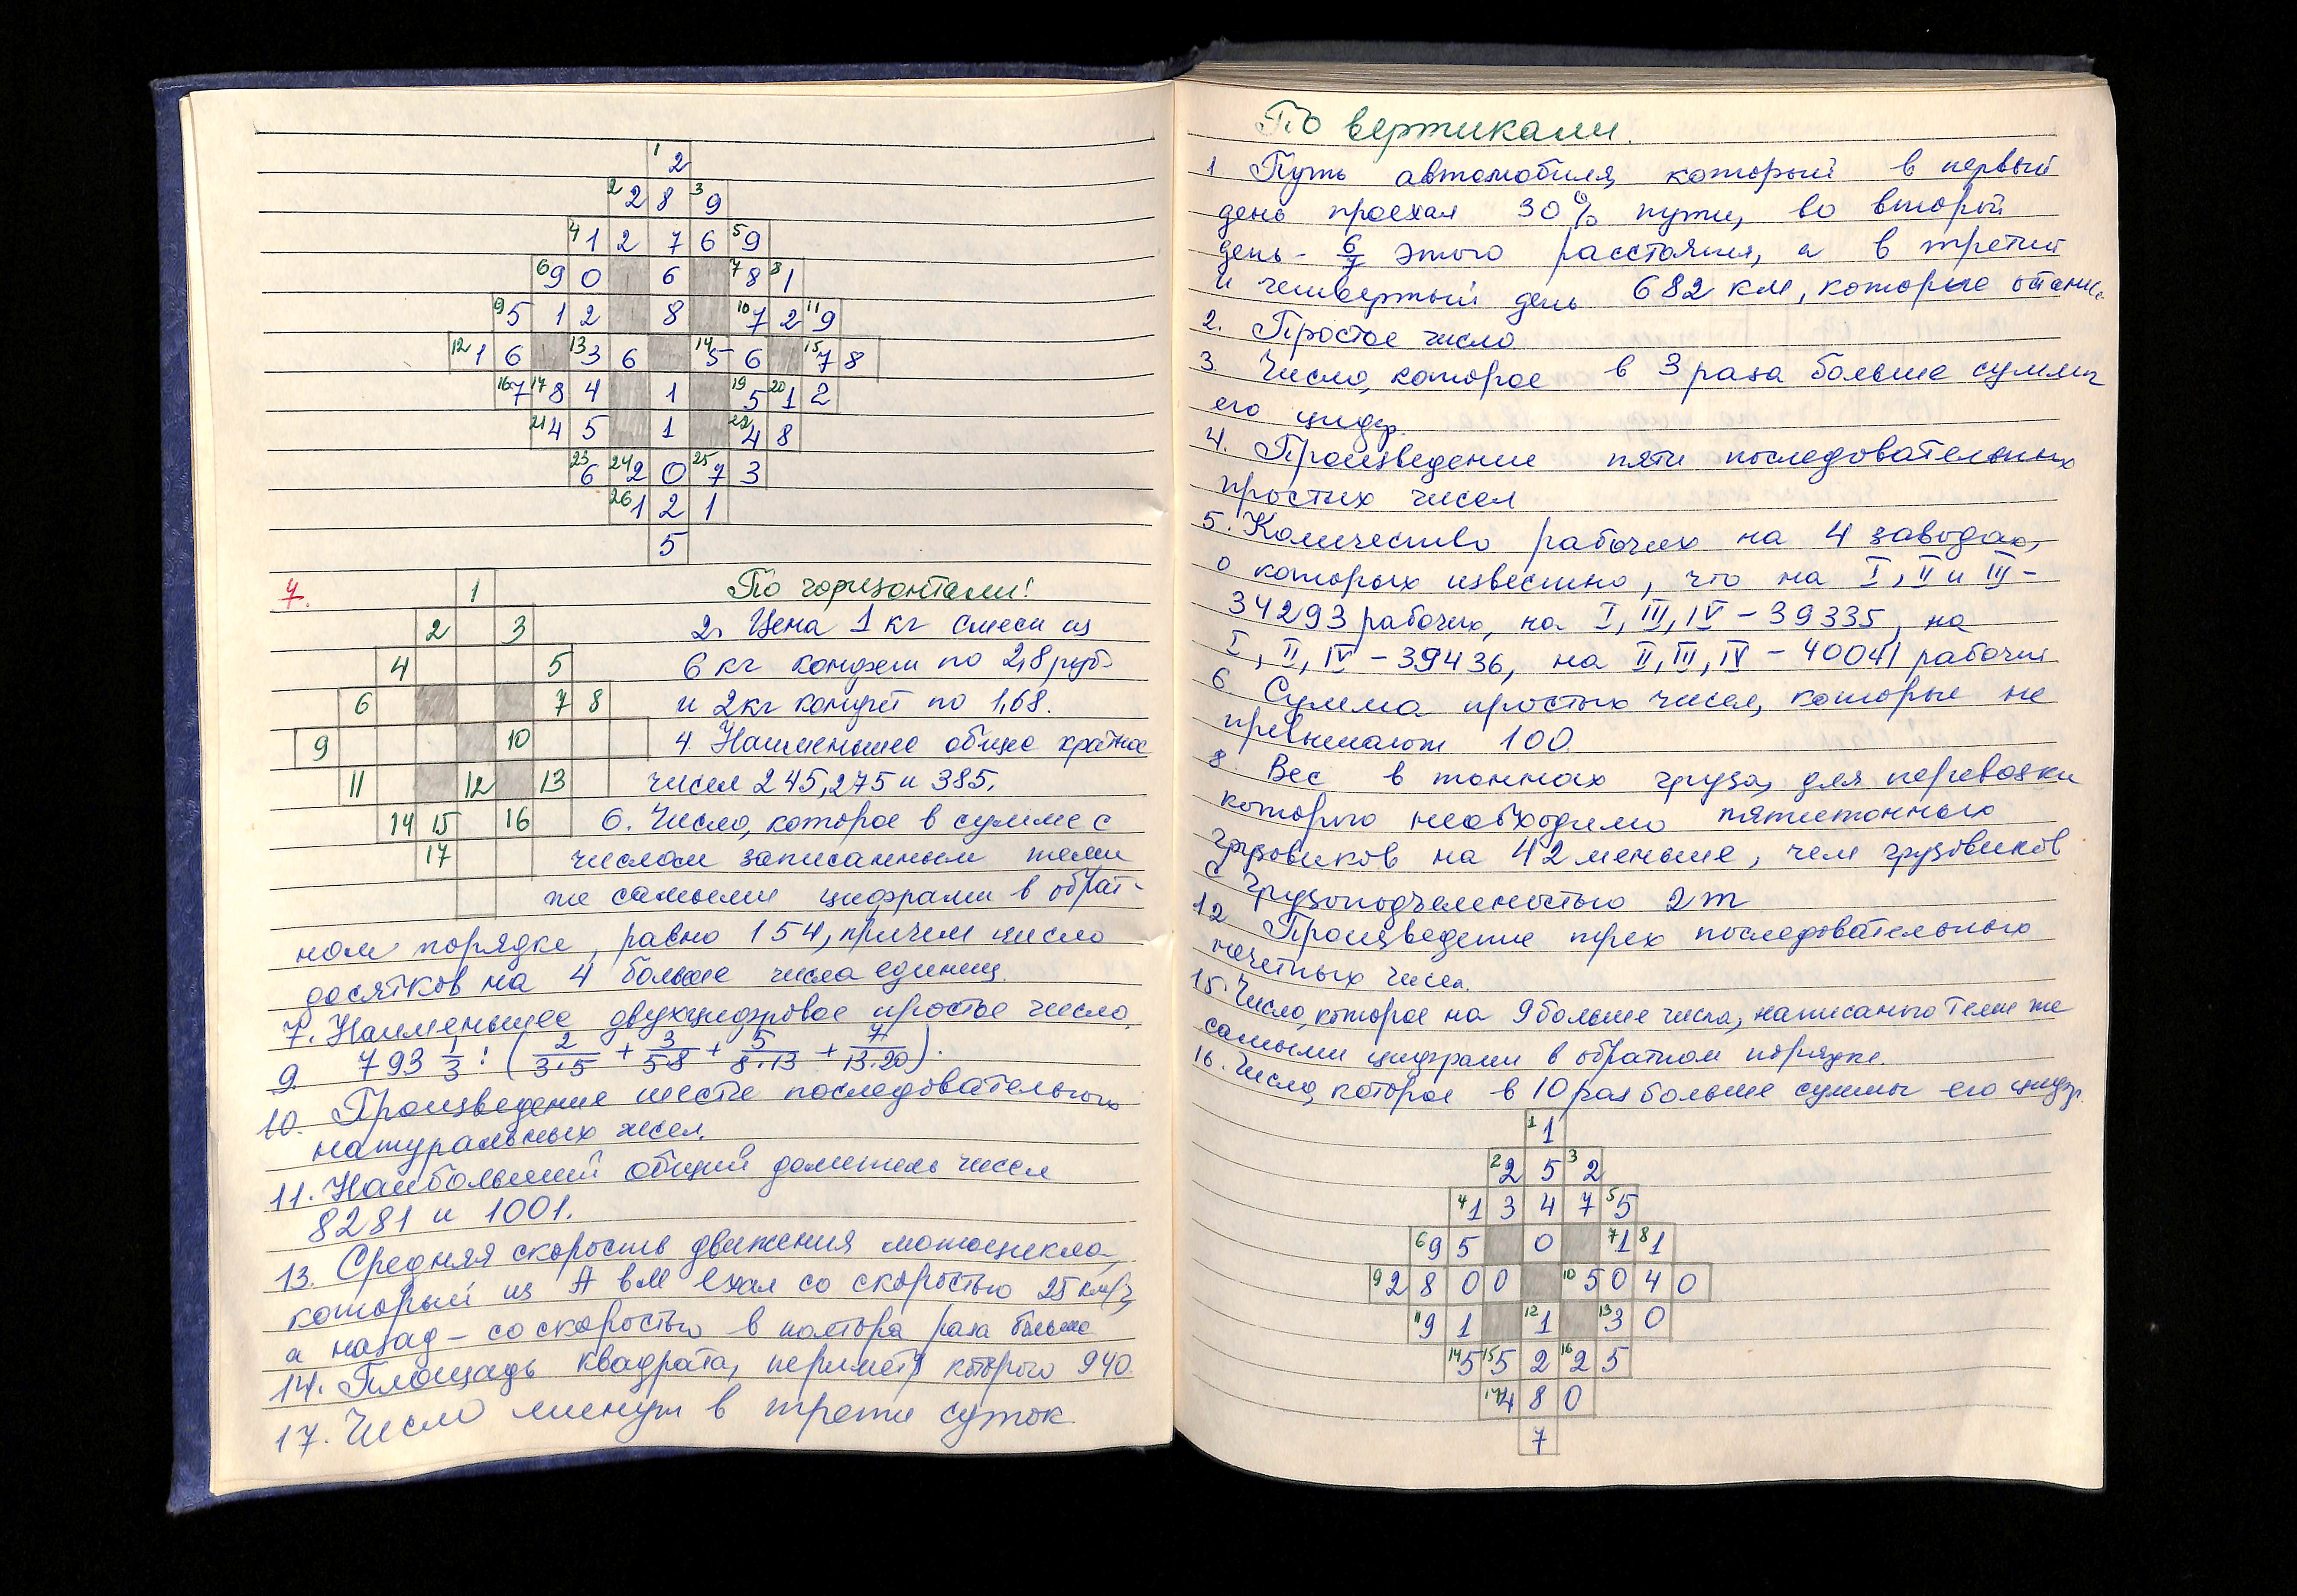 1 2
2 2 8 3 9
4 1 2 7 6 5 9
6 9 0 6 7 8 8 1
9 5 1 2 8 10 7 2 11 9
12 1 6 13 3 6 14 5 6 15 7 8
16 7 17 8 4 1 19 5 20 1 2
21 4 5 1 22 4 8
23 6 24 2 0 25 7 3
26 1 2 1
5
7. 1 По горизонтали!
2 3 2. Цена 1 кг смеси из
4 5 6 кг конфет по 2,8 руб
6 7 8 и 2 кг конфет по 1,68.
9 10 4. Наименьшее общее кратное
11 12 13 чисел 245, 275 и 385.
14 15 16 6. Число, которое в сумме с
17 числом записанным теми
же самыми цифрами в обрат-
ном порядке, равно 154, причем число
десятков на 4 больше числа единиц.
7. Наименьшее двухцифровое простое число.
9. 793 1/3 : (2/3·5 + 3/5·8 + 5/8·13 + 7/13·20).
10. Произведение шести последовательных
натуральных чисел.
11. Наибольший общий делитель чисел
8281 и 1001.
13. Средняя скорость движения мотоцикла,
который из А в М ехал со скоростью 25 км/ч,
а назад - со скоростью в полтора раза больше
14. Площадь квадрата, периметр которого 940.
17. Число минут в трети суток
По вертикали.
1 Путь автомобиля, который в первый
день проехал 30% пути, во второй
день - 6/7 этого расстояния, а в третий
и четвертый день 682 км, которые остались
2. Простое число
3. Число, которое в 3 раза больше суммы
его цифр.
4. Произведение пяти последовательных
простых чисел
5. Количество рабочих на 4 заводах,
о которых известно, что на I, II и III -
34293 рабочих, на I, III, IV - 39335, на
I, II, IV - 39436, на II, III, IV - 40041 рабочих
6 Сумма простых чисел, которые не
превышают 100.
8. Вес в тоннах груза, для перевозки
которого необходимо пятитонного
грузовиков на 42 меньше, чем грузовиков
с грузоподъемностью 2 т
12 Произведение трех последовательного
нечетных чисел.
15. Число, которое на 9 больше числа, написаного теми же
самыми цифрами в обратном порядке.
16. Число, которое в 10 раз больше суммы его цифр.
1 1
2 2 5 3 2
4 1 3 4 7 5 5
6 9 5 0 7 1 8 1
9 2 8 0 0 10 5 0 4 0
11 9 1 12 1 13 3 0
14 5 15 5 2 16 2 5
17 4 8 0
7